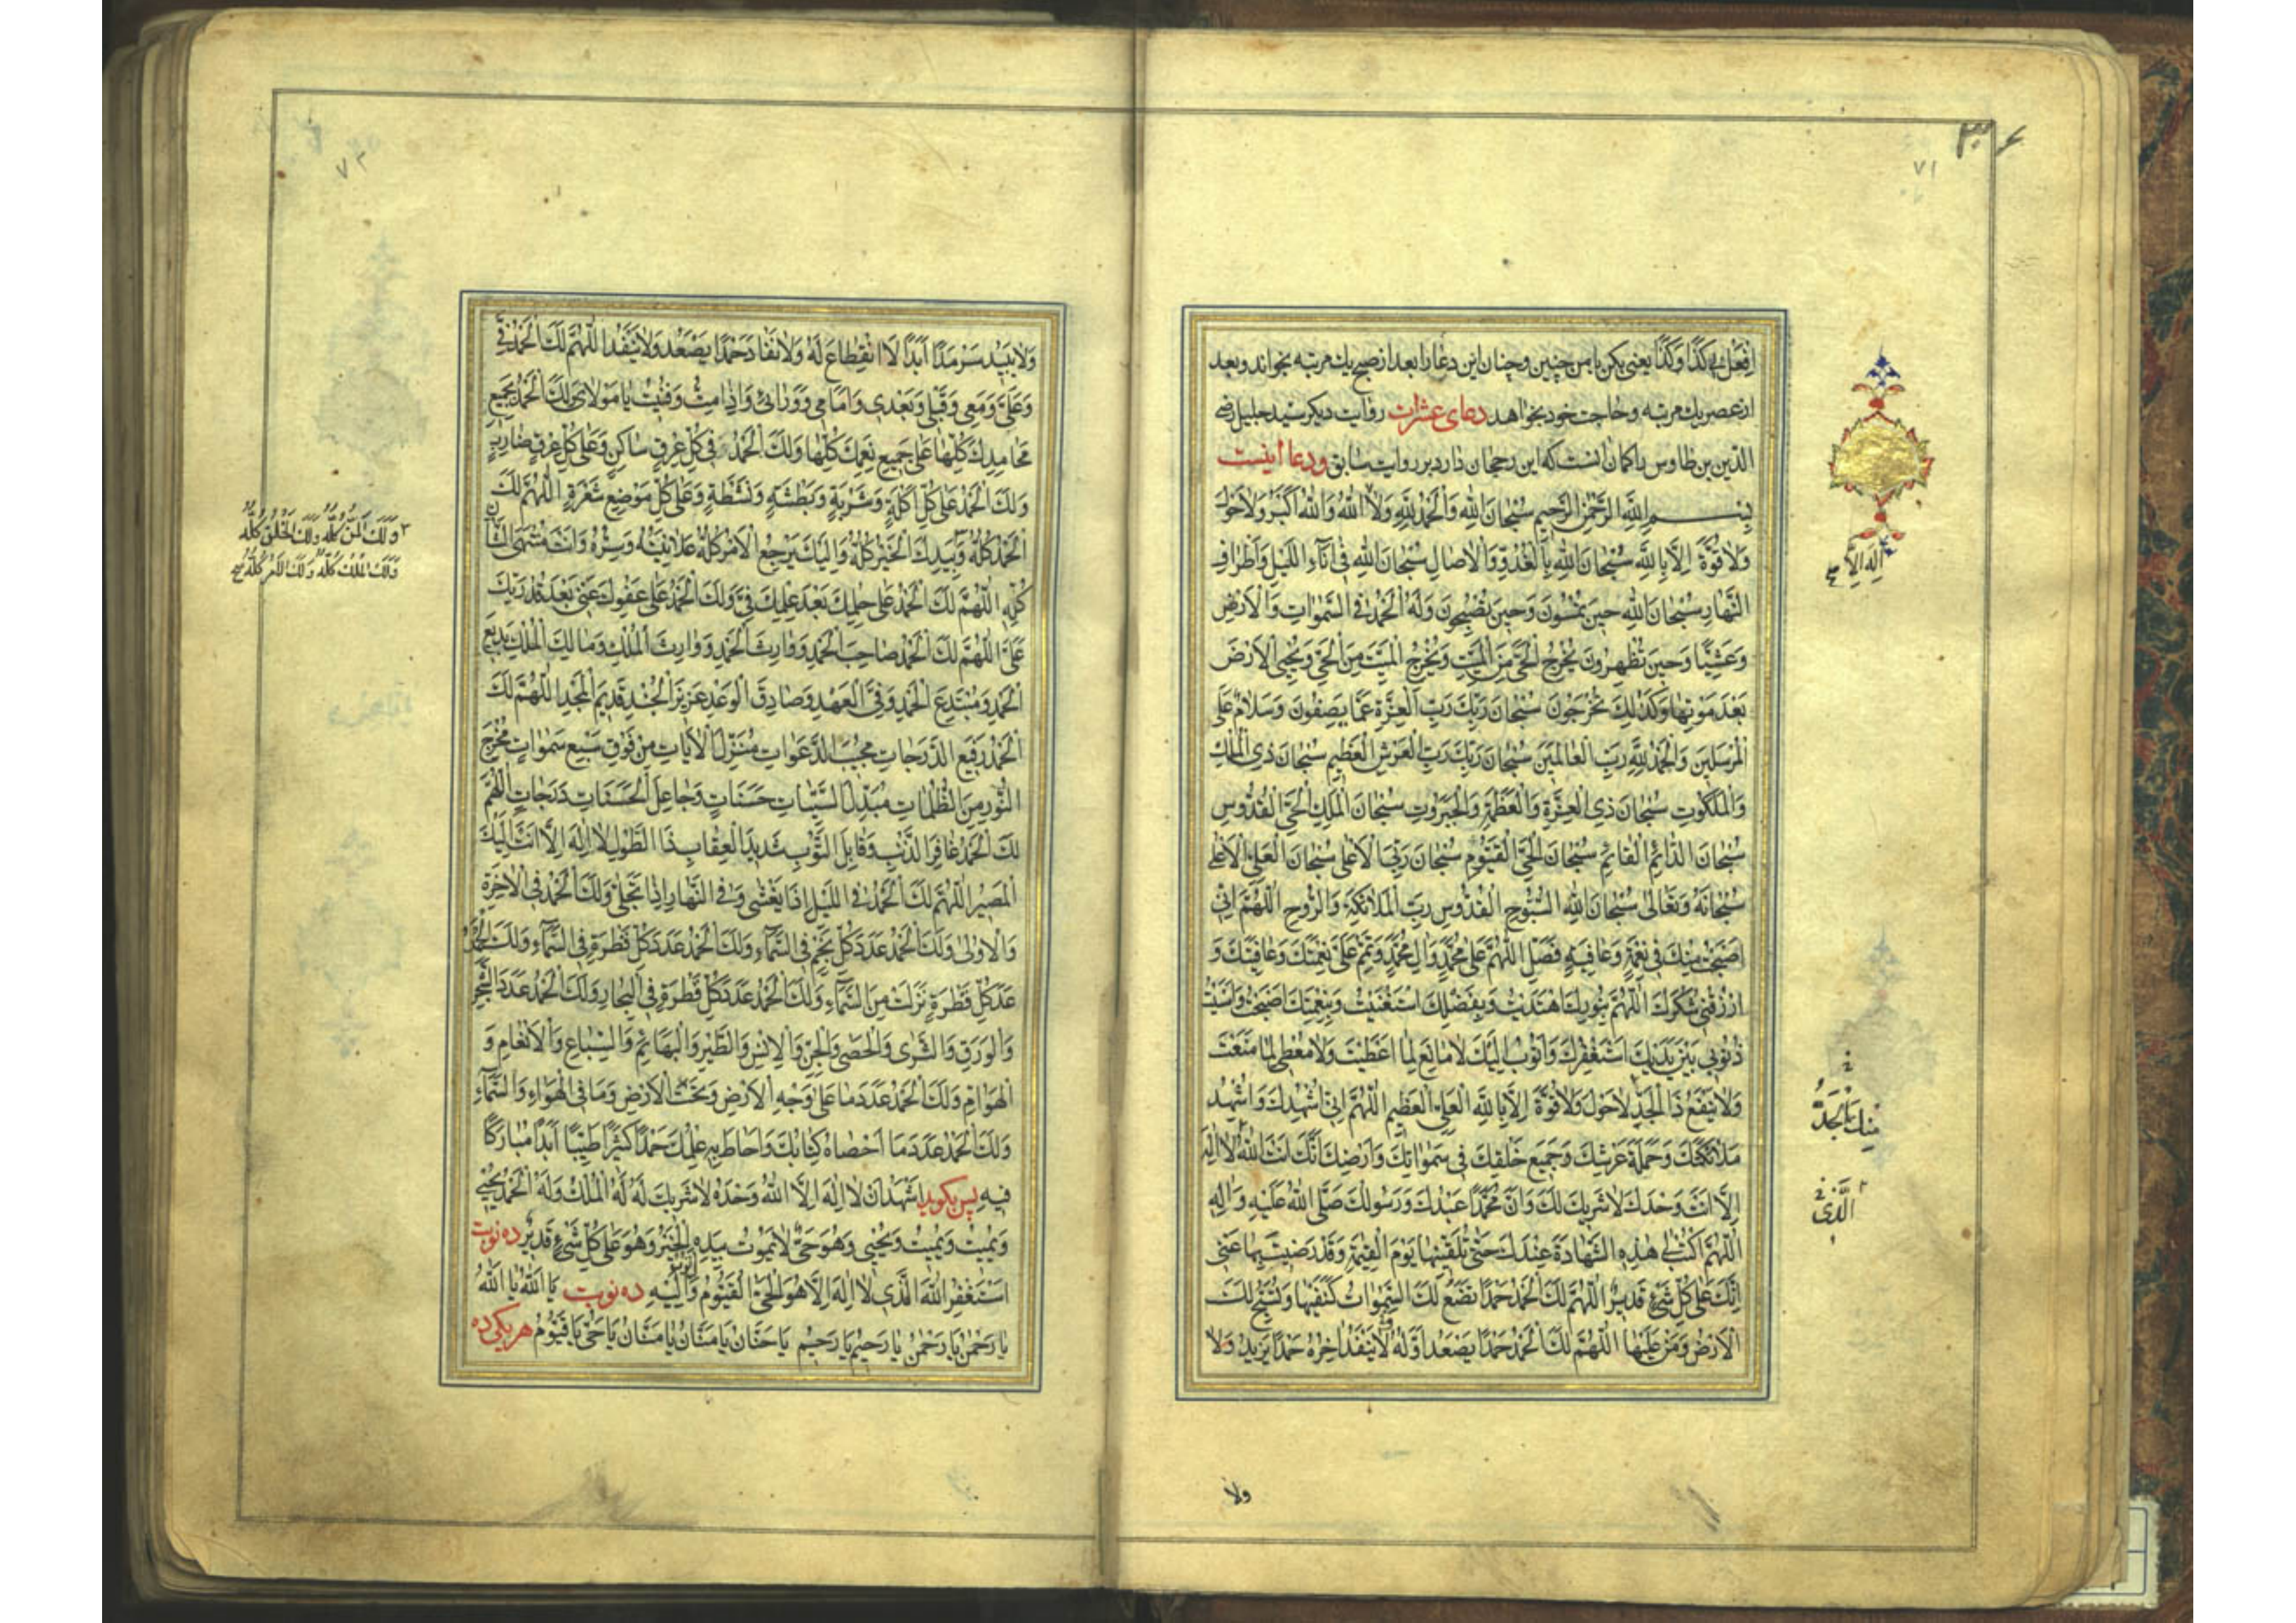 ٣٦
٧١
اِفْعَلْ بى كَذا وَكَذا يعنى بكن با من چنين وچنان اين دعا را بعد از صبح يك مرتبه بخواند وبعد
از عصر يك مرتبه وحاجت خود بخواهد دعاى عشرات روايت ديكر سيد جليل رضى
الدّين بن طاوس را كمان انست كه اين رجحان دارد بر روايت سابق ودعا اينست
بِسْمِ اللّهِ الرَّحْمنِ الرَّحيمِ سُبْحانَ اللّهِ وَالْحَمْدُ لِلّهِ وَلا اللّهُ وَاللّهُ اَكْبَرُ وَلا حَوْلَ
اِلهَ اِلاَّ صح
وَلا قُوَّةَ اِلاّ بِاللّهِ سُبْحانَ اللّهِ بِالْغُدُوِّ وَالْاصالِ سُبْحانَ اللّهِ فى اناءِ اللَّيْلِ وَاَطْرافِ
النَّهارِ سُبْحانَ اللّهِ حينَ تُمْسُونَ وَحينَ تُصْبِحُونَ وَلَهُ الْحَمْدُ فِى السَّمواتِ وَالْاَرْضِ
وَعَشِيّاً وَحينَ تُظْهِرُونَ يُخْرِجُ الْحَىَّ مِنَ الْمَيِّتِ وَيُخْرِجُ الْمَيِّتَ مِنَ الْحَىِّ وَيُحْيِى الْاَرْضَ
بَعْدَ مَوْتِها وَكَذلِكَ تُخْرَجُونَ سُبْحانَ رَبِّكَ رَبِّ الْعِزَّةِ عَمّا يَصِفُونَ وَسَلامٌ عَلَى
الْمُرْسَلينَ وَالْحَمْدُ لِلّهِ رَبِّ الْعالَمينَ سُبْحانَ رَبِّكَ رَبِّ الْعَرْشِ الْعَظيمِ سُبْحانَ ذِى الْمُلْكِ
وَالْمَلَكُوتِ سُبْحانَ ذِى الْعِزَّةِ وَالْعَظَمَةِ وَالْجَبَرُوتِ سُبْحانَ الْمَلِكِ الْحَىِّ الْقُدُّوسِ
سُبْحانَ الدّائِمِ الْقائِمِ سُبْحانَ الْحَىِّ الْقَيُّومِ سُبْحانَ رَبِّىَ الْاَعْلى سُبْحانَ الْعَلِىِّ الْاَعْلى
سُبْحانَهُ وَتَعالى سُبْحانَ اللّهِ السُّبُّوحِ الْقُدُّوسِ رَبِّ الْمَلائِكَةِ وَالرُّوحِ اَللّهُمَّ اِنّى
اَصْبَحْتُ مِنْكَ فى نِعْمَةٍ وَعافِيَةٍ فَصَلِّ اللّهُمَّ عَلى مُحَمَّدٍ وَالِ مُحَمَّدٍ وَتَمِّمْ عَلَىَّ نِعْمَتَكَ وَعافِيَتَكَ وَ
ارْزُقْنى شُكْرَكَ اَللّهُمَّ بِنُورِكَ اهْتَدَيْتُ وَبِفَضْلِكَ اسْتَغْنَيْتُ وَبِنِعْمَتِكَ اَصْبَحْتُ وَاَمْسَيْتُ
ذُنُوبى بَيْنَ يَدَيْكَ اَسْتَغْفِرُكَ وَاَتُوبُ اِلَيْكَ لا مانِعَ لِما اَعْطَيْتَ وَلا مُعْطِىَ لِما مَنَعْتَ
وَلا يَنْفَعُ ذَا الْجَدِّ لا حَوْلَ وَلا قُوَّةَ اِلاّ بِاللّهِ الْعَلِىِّ الْعَظيمِ اَللّهُمَّ اِنّى اُشْهِدُكَ وَاُشْهِدُ
مِنْكَ الْجَدُّ
مَلائِكَتَكَ وَحَمَلَةَ عَرْشِكَ وَجَميعَ خَلْقِكَ فى سَمواتِكَ وَاَرْضِكَ اَنَّكَ اَنْتَ اللّهُ لا اِلهَ
الَّذى
اِلاّ اَنْتَ وَحْدَكَ لا شَريكَ لَكَ وَاَنَّ مُحَمَّداً عَبْدُكَ وَرَسُولُكَ صَلَّى اللّهُ عَلَيْهِ وَالِهِ
اَللّهُمَّ اكْتُبْ لى هذِهِ الشَّهادَةَ عِنْدَكَ حَتّى تُلَقِّيَنيها يَوْمَ الْقِيمَةِ وَقَدْ رَضيتَ بِها عَنّى
اِنَّكَ عَلى كُلِّ شَىْءٍ قَديرٌ اَللّهُمَّ لَكَ الْحَمْدُ حَمْداً تَضَعُ لَكَ السَّمواتُ كَنَفَيْها وَتُسَبِّحُ لَكَ
الْاَرْضُ وَمَنْ عَلَيْها اَللّهُمَّ لَكَ الْحَمْدُ حَمْداً يَصْعَدُ اَوَّلُهُ لا يَنْفَدُ اخِرُهُ حَمْداً يَزيدُ وَلا
ولا
٧٢
وَلا يَبيدُ سَرْمَداً اَبَداً لَا انْقِطاعَ لَهُ وَلا نَفادَ حَمْداً يَصْعَدُ وَلا يَنْفَدُ اَللّهُمَّ لَكَ الْحَمْدُ فِىَّ
وَعَلَىَّ وَمَعى وَقَبْلى وَبَعْدى وَاَمامى وَوَرائى وَاِذا مِتُّ وَفَنيتُ يا مَوْلاىَ لَكَ الْحَمْدُ بِجَميعِ
مَحامِدِكَ كُلِّها عَلى جَميعِ نِعَمِكَ كُلِّها وَلَكَ الْحَمْدُ فى كُلِّ عِرْقٍ ساكِنٍ وَعَلى كُلِّ عِرْقٍ ضارِبٍ
وَلَكَ الْحَمْدُ عَلى كُلِّ اَكْلَةٍ وَشَرْبَةٍ وَبَطْشَةٍ وَنَشْطَةٍ وَعَلى كُلِّ مَوْضِعِ شَعْرَةٍ اَللّهُمَّ لَكَ
الْحَمْدُ كُلُّهُ وَبِيَدِكَ الْخَيْرُ كُلُّهُ وَاِلَيْكَ يَرْجِعُ الْاَمْرُ كُلُّهُ عَلانِيَتُهُ وَسِرُّهُ وَاَنْتَ مُنْتَهَى الشَّاْنِ
وَلَكَ الْمَنُّ كُلُّهُ وَلَكَ الْخَلْقُ كُلُّهُ
وَلَكَ الْمُلْكُ كُلُّهُ وَلَكَ الْاَمْرُ كُلُّهُ صح
كُلِّهِ اَللّهُمَّ لَكَ الْحَمْدُ عَلى حِلْمِكَ بَعْدَ عِلْمِكَ فِىَّ وَلَكَ الْحَمْدُ عَلى عَفْوِكَ عَنّى بَعْدَ قُدْرَتِكَ
عَلَىَّ اَللّهُمَّ لَكَ الْحَمْدُ صاحِبَ الْحَمْدِ وَوارِثَ الْحَمْدِ وَوارِثَ الْمُلْكِ وَمالِكَ الْمُلْكِ بَديعَ
الْحَمْدِ وَمُبْتَدِعَ الْحَمْدِ وَفِىَّ الْعَهْدِ وَصادِقَ الْوَعْدِ عَزيزَ الْجُنْدِ قَديمَ الْمَجْدِ اَللّهُمَّ لَكَ
الْحَمْدُ رَفيعَ الدَّرَجاتِ مُجيبَ الدَّعَواتِ مُنْزِلَ الْاياتِ مِنْ فَوْقِ سَبْعِ سَمواتٍ مُخْرِجَ
النُّورِ مِنَ الظُّلُماتِ مُبَدِّلَ السَّيِّئاتِ حَسَناتٍ وَجاعِلَ الْحَسَناتِ دَرَجاتٍ اَللّهُمَّ
لَكَ الْحَمْدُ غافِرَ الذَّنْبِ وَقابِلَ التَّوْبِ شَديدَ الْعِقابِ ذَا الطَّوْلِ لا اِلهَ اِلاّ اَنْتَ اِلَيْكَ
الْمَصيرُ اَللّهُمَّ لَكَ الْحَمْدُ فِى اللَّيْلِ اِذا يَغْشى وَفِى النَّهارِ اِذا تَجَلّى وَلَكَ الْحَمْدُ فِى الْاخِرَةِ
وَالْاُولى وَلَكَ الْحَمْدُ عَدَدَ كُلِّ نَجْمٍ فِى السَّماءِ وَلَكَ الْحَمْدُ عَدَدَ كُلِّ قَطْرَةٍ فِى السَّماءِ وَلَكَ الْحَمْدُ
عَدَدَ كُلِّ قَطْرَةٍ نَزَلَتْ مِنَ السَّماءِ وَلَكَ الْحَمْدُ عَدَدَ كُلِّ قَطْرَةٍ فِى الْبِحارِ وَلَكَ الْحَمْدُ عَدَدَ الشَّجَرِ
وَالْوَرَقِ وَالثَّرى وَالْحَصى وَالْجِنِّ وَالْاِنْسِ وَالطَّيْرِ وَالْبَهائِمِ وَالسِّباعِ وَالْاَنْعامِ وَ
الْهَوامِّ وَلَكَ الْحَمْدُ عَدَدَ ما عَلى وَجْهِ الْاَرْضِ وَتَحْتَ الْاَرْضِ وَما فِى الْهَواءِ وَالسَّماءِ
وَلَكَ الْحَمْدُ عَدَدَ ما اَحْصاهُ كِتابُكَ وَاَحاطَ بِهِ عِلْمُكَ حَمْداً كَثيراً طَيِّباً اَبَداً مُبارَكاً
فيهِ پس بكويد اَشْهَدُ اَنْ لا اِلهَ اِلاَّ اللّهُ وَحْدَهُ لا شَريكَ لَهُ لَهُ الْمُلْكُ وَلَهُ الْحَمْدُ يُحْيى
وَيُميتُ وَيُميتُ وَيُحْيى وَهُوَ حَىٌّ لا يَمُوتُ بِيَدِهِ الْخَيْرُ وَهُوَ عَلى كُلِّ شَىْءٍ قَديرٌ ده نوبت
اَسْتَغْفِرُ اللّهَ الَّذى لا اِلهَ اِلاّ هُوَ الْحَىُّ الْقَيُّومُ وَاِلَيْهِ ده نوبت يا اَللّهُ يا اَللّهُ
يا رَحْمنُ يا رَحْمنُ يا رَحيمُ يا رَحيمُ يا حَنّانُ يا مَنّانُ يا مَنّانُ يا حَىُّ يا قَيُّومُ هر يكى ده